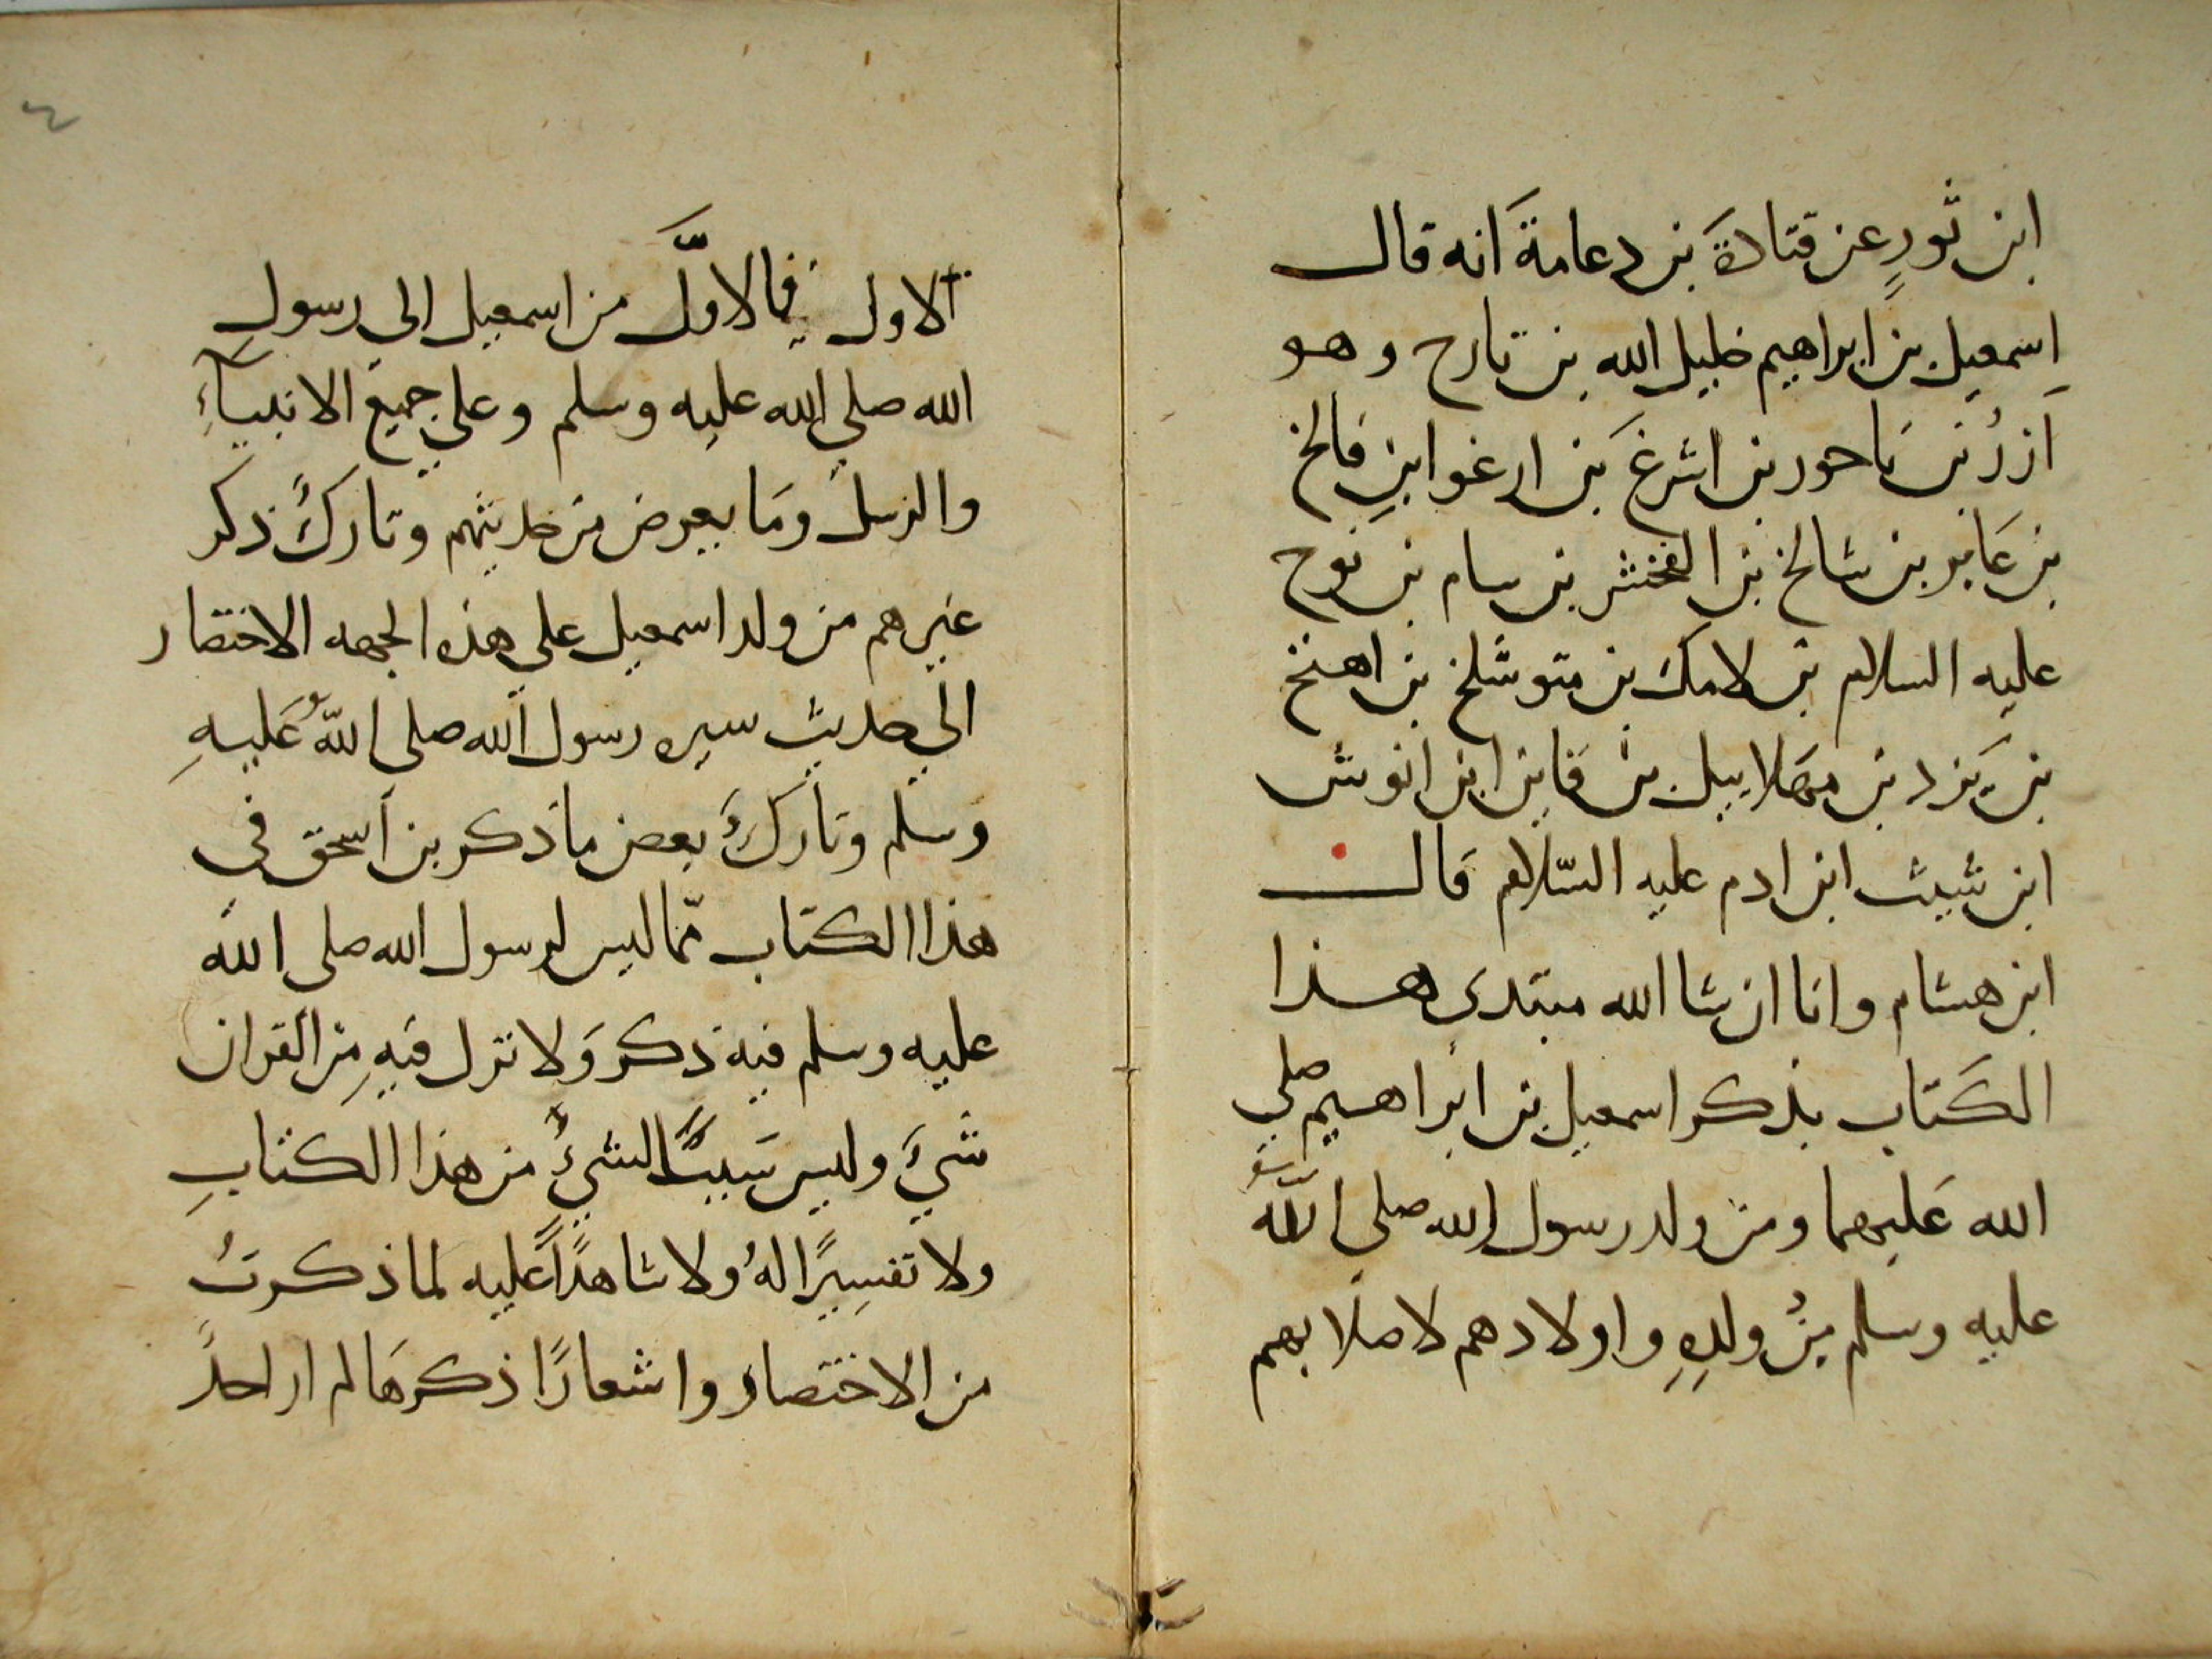 ابن ثورٍ عن قتادةَ بن دعامةَ انه قال
اِسمعيل بن ابراهيم خليل الله بن تارح وهو
آزرُ بن ناحور بن اشرغ بن ارغوا بن فالخ
بن عَابر بن شالخ بن الفخشر بن سام بن نوح
عليه السلام بن لامك بن متوشلخ بن اهنخ
بن يَرد بن مهلاييل بن قاين ابن انوش
ابن شيث ابن ادم عليه السّلام قال
ابن هشام وانا ان شا الله مبتدى هذا
الكتاب بذكر اسمعيل بن ابراهيم صلي
الله عَليهما ومن ولد رسول الله صلي الله
عليه وسلم مِنْ ولدِهِ واولادهم لاصلابهم
٤
الاول فالاوَّل من اسمعيل الي رسول
الله صلي الله عليه وسلم وعلي جميع الانبيآءِ
والرسل وما يعرض من حديثهم وتاركُ ذكر
غيرهم من ولد اسمعيل علي هذه الجهه الاختصار
الي حديث سيره رسول الله صلى اللهُ عَليهِ
وسلم وتاركُ بعض ما ذكر بن اسحق في
هذا الكتاب ممّا ليس لرسول الله صلى الله
عليه وسلم فيه ذكر وَلا نزل فيهِ مِن القران
شيءَ وليس سَببًا لشيءٍ من هذا الكتابِ
ولا تفسِيرًا لهُ ولا شاهدًا عليه لما ذكرتُ
من الاختصار واشعارًا ذكرهَا لم ار احدً